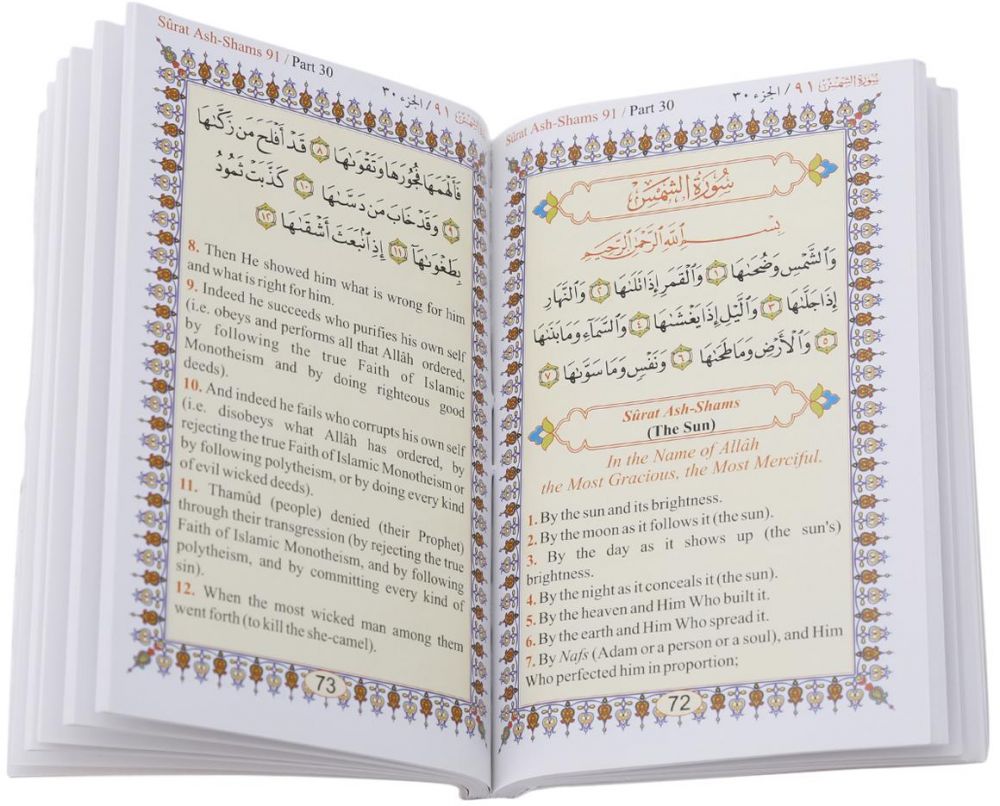 Sûrat Ash-Shams 91 / Part 30 سورة الشمس ٩١ / الجزء ٣٠
سُورَةُ الشَّمْسِ
بِسْمِ اللَّهِ الرَّحْمَٰنِ الرَّحِيمِ
وَٱلشَّمْسِ وَضُحَىٰهَا ١ وَٱلْقَمَرِ إِذَا تَلَىٰهَا ٢ وَٱلنَّهَارِ
إِذَا جَلَّىٰهَا ٣ وَٱلَّيْلِ إِذَا يَغْشَىٰهَا ٤ وَٱلسَّمَآءِ وَمَا بَنَىٰهَا
٥ وَٱلْأَرْضِ وَمَا طَحَىٰهَا ٦ وَنَفْسٍ وَمَا سَوَّىٰهَا ٧
Sûrat Ash-Shams
(The Sun)
In the Name of Allâh
the Most Gracious, the Most Merciful.
1. By the sun and its brightness.
2. By the moon as it follows it (the sun).
3. By the day as it shows up (the sun's)
brightness.
4. By the night as it conceals it (the sun).
5. By the heaven and Him Who built it.
6. By the earth and Him Who spread it.
7. By Nafs (Adam or a person or a soul), and Him
Who perfected him in proportion;
72
Sûrat Ash-Shams 91 / Part 30 سورة الشمس ٩١ / الجزء ٣٠
فَأَلْهَمَهَا فُجُورَهَا وَتَقْوَىٰهَا ٨ قَدْ أَفْلَحَ مَن زَكَّىٰهَا
٩ وَقَدْ خَابَ مَن دَسَّىٰهَا ١٠ كَذَّبَتْ ثَمُودُ
بِطَغْوَىٰهَآ ١١ إِذِ ٱنۢبَعَثَ أَشْقَىٰهَا ١٢
8. Then He showed him what is wrong for him
and what is right for him.
9. Indeed he succeeds who purifies his own self
(i.e. obeys and performs all that Allâh ordered,
by following the true Faith of Islamic
Monotheism and by doing righteous good
deeds).
10. And indeed he fails who corrupts his own self
(i.e. disobeys what Allâh has ordered, by
rejecting the true Faith of Islamic Monotheism or
by following polytheism, or by doing every kind
of evil wicked deeds).
11. Thamûd (people) denied (their Prophet)
through their transgression (by rejecting the true
Faith of Islamic Monotheism, and by following
polytheism, and by committing every kind of
sin).
12. When the most wicked man among them
went forth (to kill the she-camel).
73